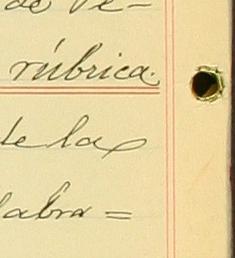 de Ve-
rúbrica.
de la
labra=